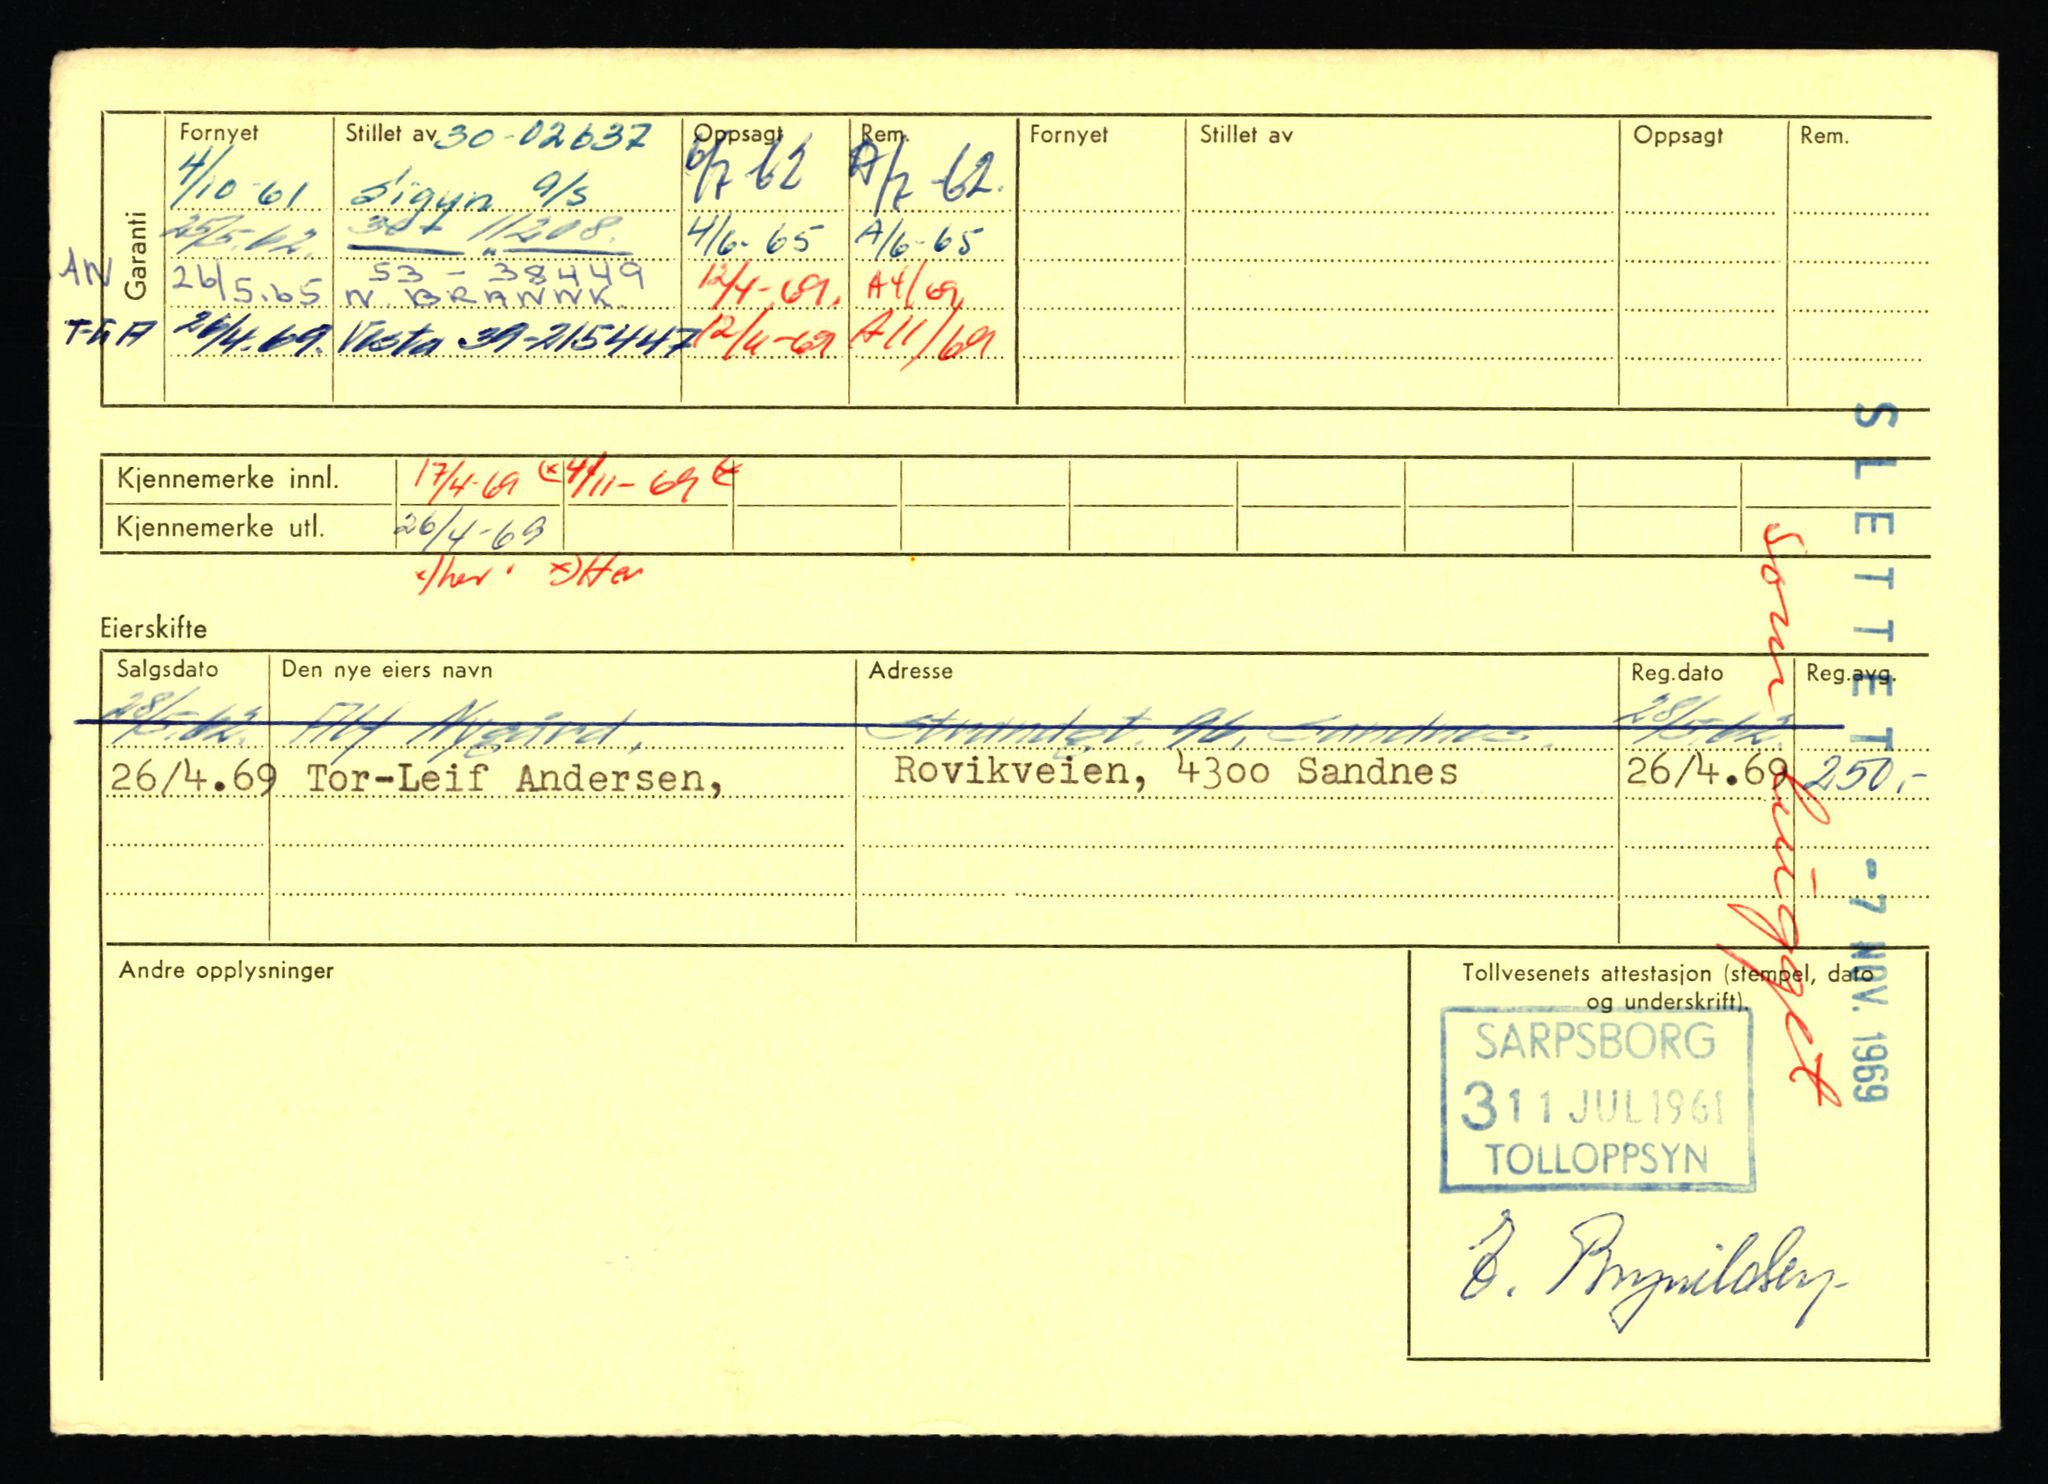 Garanti
Fornyet Stillet av 30-02637 Oppsagt Rem. Fornyet Stillet av Oppsagt Rem.
4/10-61 Sigyn a/s 6/7-62 A/7-62.
25/5.62. 11208. 4/6-65 A/6-65
AN 26/5.65 53-38449 12/4-69. A4/69
N. BRANNK.
26/4.69. Vesta 39-215447 12/11-69 A11/69
Kjennemerke innl. 17/4-69 (x 4/11-69 (x
Kjennemerke utl. 26/4-69
x/her x)Her
Eierskifte
Salgsdato Den nye eiers navn Adresse Reg.dato Reg.avg.
28/5-62. Alf Nygård, Strandgt. 96, Sandnes. 28/5-62.
26/4.69 Tor-Leif Andersen, Rovikveien, 4300 Sandnes 26/4.69 250,-
Andre opplysninger
Tollvesenets attestasjon (stempel, dato
og underskrift).
SARPSBORG
3 11 JUL 1961
TOLLOPPSYN
E. Brynildsen
SLETTET -7 NOV. 1969
som hugget